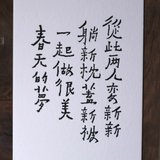 從此两人新新
躺新枕蓋新被
一起做很美
春天的夢